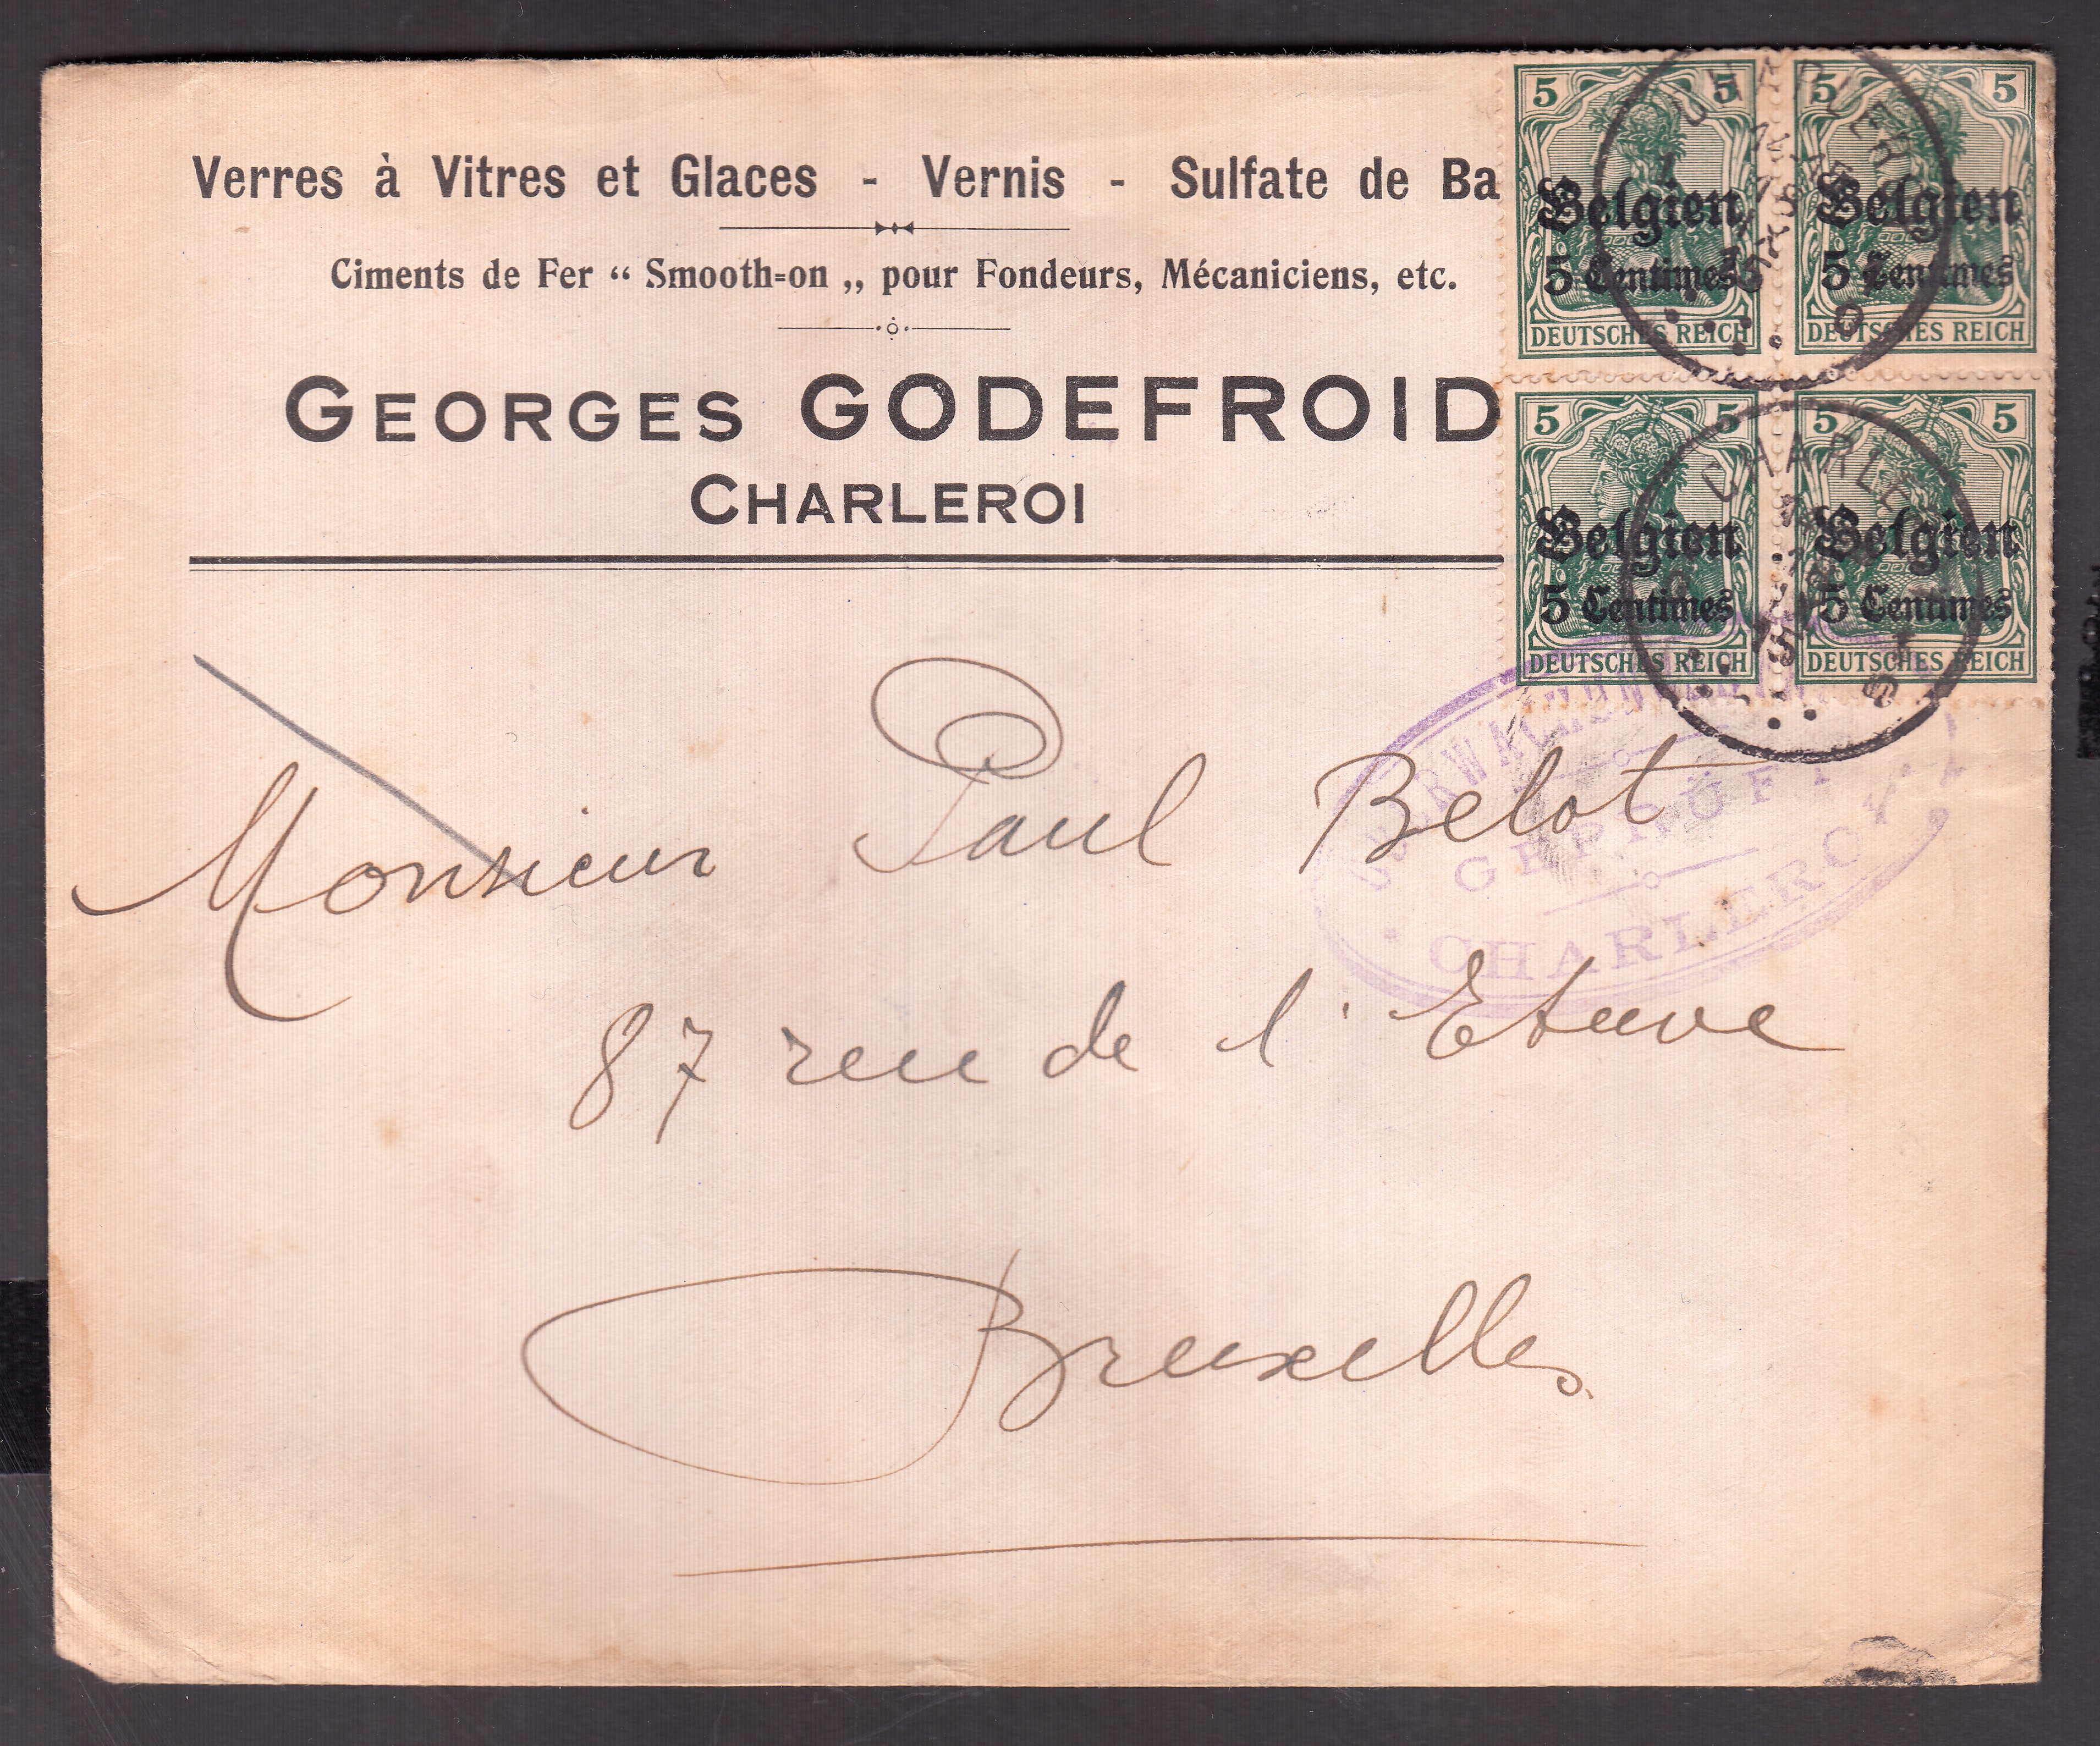 Verres à Vitres et Glaces - Vernis - Sulfate de Ba
Ciments de Fer “ Smooth=on „ pour Fondeurs, Mécaniciens, etc.
GEORGES GODEFROID
CHARLEROI
5 5
Belgien
5 Centimes
DEUTSCHES REICH
5 5
Belgien
5 Centimes
DEUTSCHES REICH
5 5
Belgien
5 Centimes
DEUTSCHES REICH
5 5
Belgien
5 Centimes
DEUTSCHES REICH
GEPRÜFT
CHARLEROI
Monsieur Paul Belot
87 rue de l'Etuve
Bruxelles